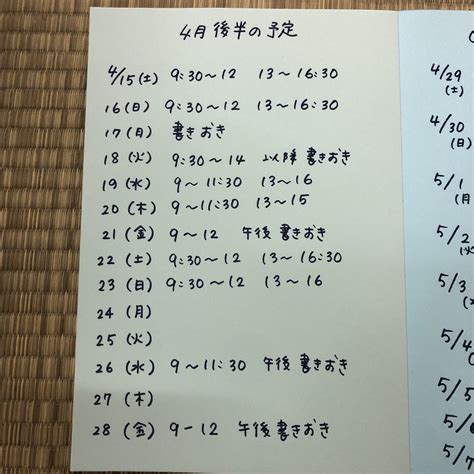 4月後半の予定
4/15(土) 9:30～12 13～16:30
16(日) 9:30～12 13～16:30
17(月) 書きおき
18(火) 9:30～14 以降書きおき
19(水) 9～11:30 13～16
20(木) 9～11:30 13～15
21(金) 9～12 午後書きおき
22(土) 9:30～12 13～16:30
23(日) 9:30～12 13～16
24(月)
25(火)
26(水) 9～11:30 午後書きおき
27(木)
28(金) 9-12 午後書きおき
4/29
(土)
4/30
(日)
5/1
(月
5/2
(火
5/3
5/4
5/5
5/6
5/7